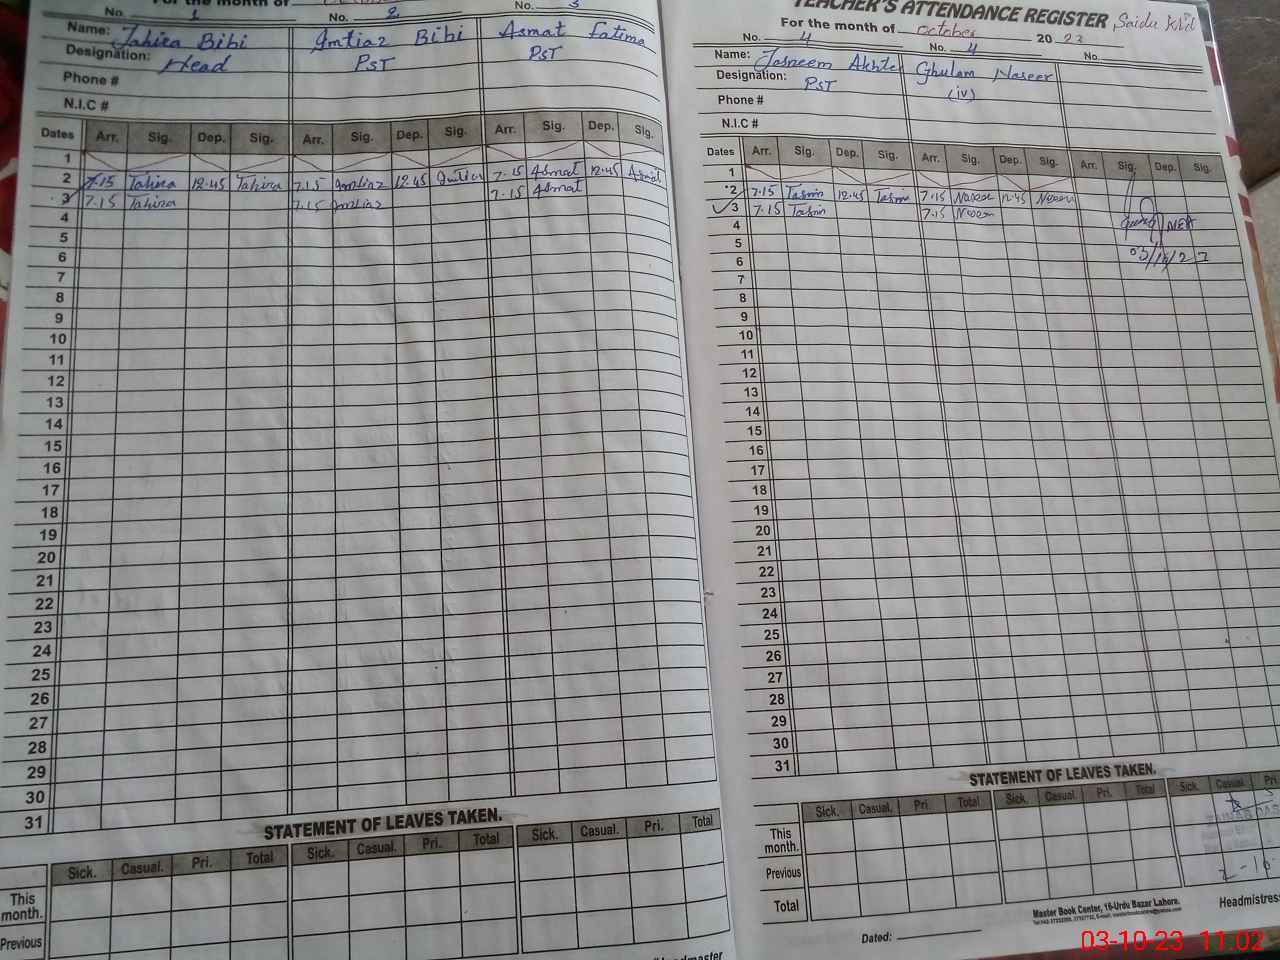 For the month of
No. 1 No. 2 No. 3
Name: Tahira Bibi Imtiaz Bibi Asmat Fatima
Designation: Head PST PST
Phone #
N.I.C #
Dates Arr. Sig. Dep. Sig. Arr. Sig. Dep. Sig. Arr. Sig. Dep. Sig.
1
2 7.15 Tahira 12.45 Tahira 7.15 Imtiaz 12.45 Imtiaz 7.15 Asmat 12.45 Asmat
3 7.15 Tahira 7.15 Imtiaz 7.15 Asmat
4
5
6
7
8
9
10
11
12
13
14
15
16
17
18
19
20
21
22
23
24
25
26
27
28
29
30
31
STATEMENT OF LEAVES TAKEN.
Sick. Casual. Pri. Total Sick. Casual. Pri. Total Sick. Casual. Pri. Total
This month.
Previous
TEACHER'S ATTENDANCE REGISTER Saidu
For the month of October 2023
No. 4 No. 4 No.
Name: Tasneem Akhter Ghulam Naseer
Designation: PST (iv)
Phone #
N.I.C #
Dates Arr. Sig. Dep. Sig. Arr. Sig. Dep. Sig. Arr. Sig. Dep. Sig.
1
2 7.15 Tasnim 12.45 Tasnim 7.15 Naseer 12.45 Naseer
3 7.15 Tasnim 7.15 Naseer
4 MEA
5
6 03/10/23
7
8
9
10
11
12
13
14
15
16
17
18
19
20
21
22
23
24
25
26
27
28
29
30
31
STATEMENT OF LEAVES TAKEN.
Sick. Casual. Pri. Total Sick. Casual. Pri. Total Sick. Casual. Pri.
This month.
Previous
Total
Master Book Center, 16-Urdu Bazar Lahore.
Headmistress
Dated:
03-10-23 11:02